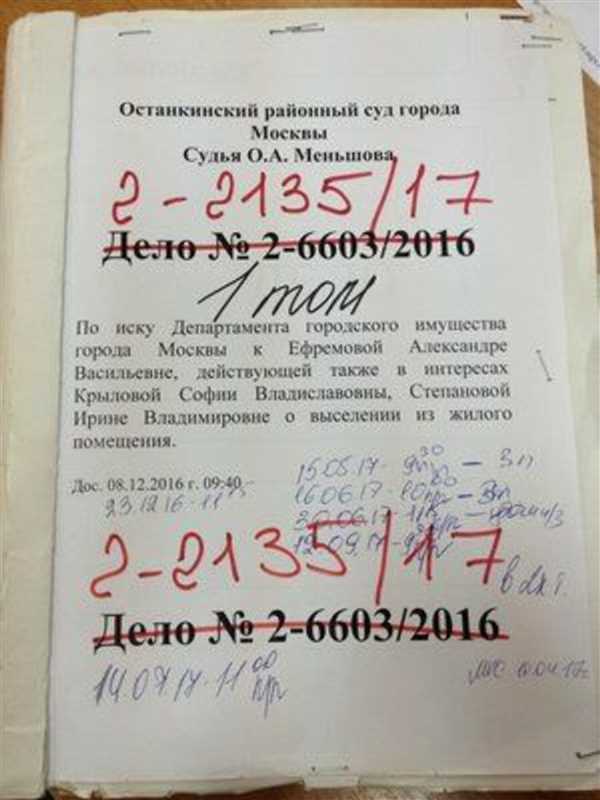 Останкинский районный суд города
Москвы
Судья О.А. Меньшова
2-2135/17
Дело № 2-6603/2016
1 том
По иску Департамента городского имущества
города Москвы к Ефремовой Александре
Васильевне, действующей также в интересах
Крыловой Софии Владиславовны, Степановой
Ирине Владимировне о выселении из жилого
помещения.
15.05.17-
Дос. 08.12.2016 г. 09:40 –
16.06.17-
23.12.16-11
30.06.17-
12.09.17-
2-2135/17
Дело № 2-6603/2016
14.07.17-11 00